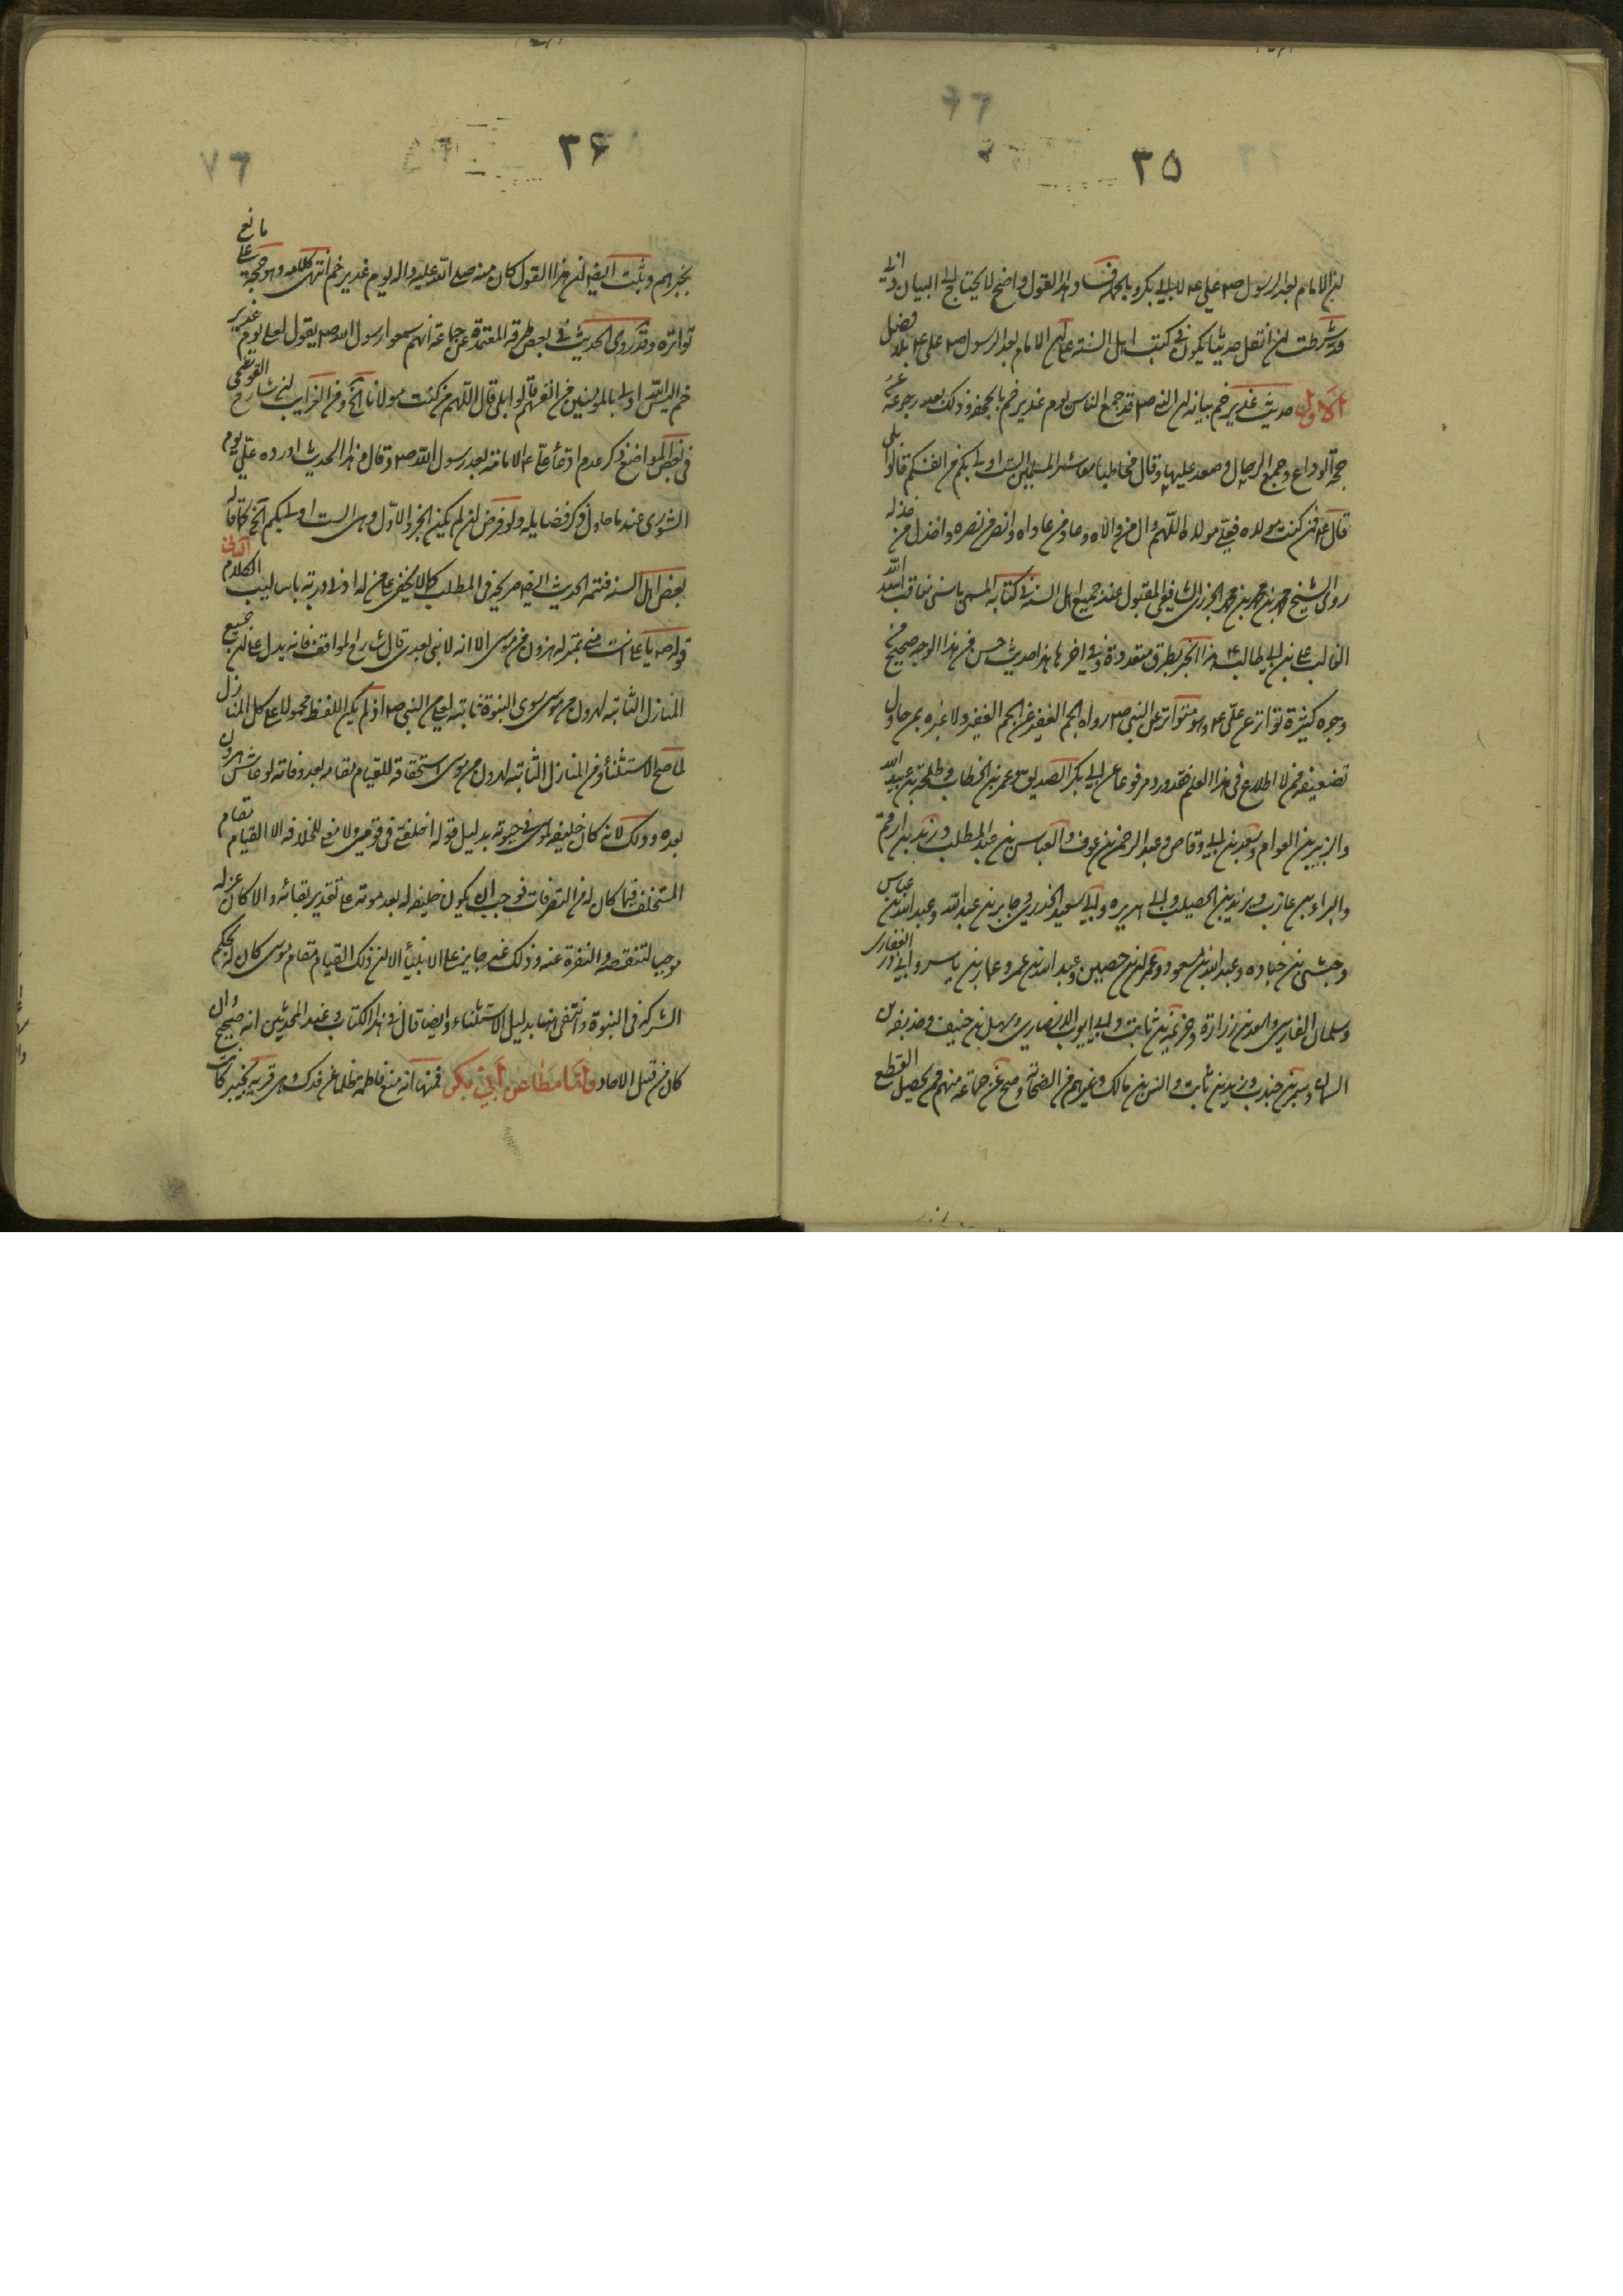 ٣٥
ان الامام بعد الرسول ص علي ع لا ابي بكر وبالجملة فساد هذا القول واضح لا يحتاج الى البيان واني
قد شرطت ان انقل حديثا يكون في كتب اهل السنة على ان الامام بعد الرسول ص علي ع بلا فصل
الاول حديث غدير خم بيانه ان النبي ص قد جمع الناس يوم غدير خم بالجحفة وذلك بعد رجوعه عن
حجة الوداع وجمع الرحال وصعد عليها وقال مخاطبا معاشر المسلمين الست اولى بكم من انفسكم قالوا بلى
قال ع فمن كنت مولاه فعلي مولاه اللهم وال من والاه وعاد من عاداه وانصر من نصره واخذل من خذله
روى الشيخ محمد بن محمد بن محمد الجزري الشافعي المقبول عند جميع اهل السنة في كتابه المسمى باسنى مناقب اسد الله
الغالب علي بن ابي طالب ع هذا الخبر بطرق متعددة وفي اخرها هذا حديث حسن من هذا الوجه صحيح من
وجوه كثيرة تواتر عن علي ع وهو متواتر عن النبي ص رواه الجم الغفير عن الجم الغفير ولا عبرة بمن حاول
تضعيفه ممن لا اطلاع في هذا العلم فقد ورد مرفوعا عن ابي بكر الصديق وعمر بن الخطاب وطلحة بن عبيد الله
والزبير بن العوام وسعد بن ابي وقاص وعبد الرحمن بن عوف والعباس بن عبد المطلب وزيد بن ارقم
والبراء بن عازب وبريدة بن الحصيب وابي هريرة وابي سعيد الخدري وجابر بن عبد الله وعبد الله بن عباس
وحبشي بن جناده وعبد الله بن مسعود وعمران بن حصين وعبد الله بن عمر وعمار بن ياسر وابي ذر الغفاري
وسلمان الفارسي واسعد بن زرارة وخزيمة بن ثابت وابي ايوب الانصاري وسهل بن حنيف وحذيفة بن
اليمان وسمرة بن جندب وزيد بن ثابت وانس بن مالك وغيرهم من الصحابة وصح عن جماعة منهم ممن يحصل القطع
٣۶
٧٦
بخبرهم وثبت ايضا ان هذا القول كان منه صلى الله عليه واله يوم غدير خم انتهى كلامه وهو حجة على مانع
تواتره وقد روى الحديث في بعض طرقه المعتمدة عن جماعة انهم سمعوا رسول الله ص يقول لعلي يوم غدير
خم اليس الله اولى بالمؤمنين من انفسهم قالوا بلى قال اللهم من كنت مولاه الخ ومن الغرايب ان شارح القوشجي
في بعض المواضع ذكر عدم ادعاء علي ع الامامة بعد رسول الله ص وقال هذا الحديث اورده علي يوم
الشورى عند ما حاول ذكر فضايله ولو فرض ان لم يكن الخبر الاول وهي الست اولى بكم الخ كما قاله
بعض اهل السنة فتتمة الحديث ايضا صريحة في المطلب كما لا يخفى على من له ادنى دربة باساليب الكلام الثاني
قوله ص يا علي انت مني بمنزلة هرون من موسى الا انه لا نبي بعدي قال شارح المواقف فانه يدل على ان جميع
المنازل الثابتة لهرون من موسى سوى النبوة ثابتة لعلي من النبي ص اذ لو لم يكن اللفظ محمولا على كل المنازل
لما صح الاستثناء ومن المنازل الثابتة لهرون من موسى استحقاقه للقيام مقامه بعد وفاته لو عاش هرون
بعده وذلك لانه كان خليفة لموسى في حيوته بدليل قوله اخلفني في قومي ولا معنى للخلافة الا القيام مقام
المستخلف فيما كان له من التصرفات فوجب ان يكون خليفة له بعد موته على تقدير بقائه والا كان عزله
موجبا لتنقصه والنفرة عنه وذلك غير جايز على الانبياء الا ان ذلك القيام مقام موسى كان له بحكم
الشركة في النبوة وانتفى ههنا بدليل الاستثناء وايضا قال في هذا الكتاب وعند المحدثين انه صحيح وان
كان من قبيل الاحاد واما مطاعن ابي بكر فمنها انه منع فاطمة ظلما عن فدك وهي قرية بخيبر كانت